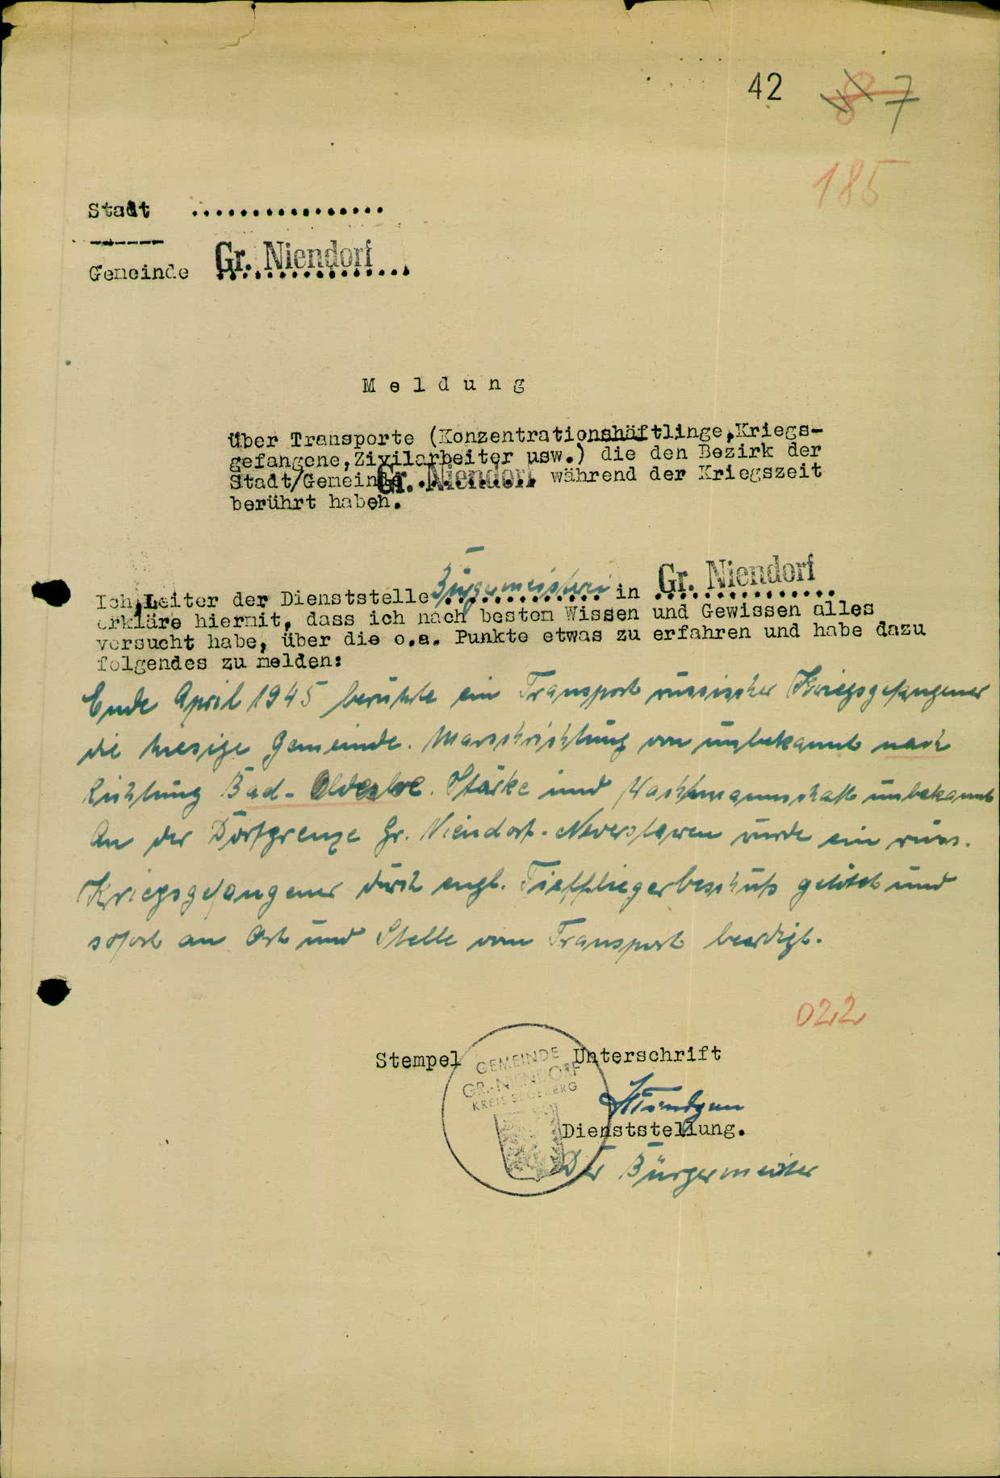 42 8 7
185
Stadt ................
Gemeinde Gr. Niendorf
Meldung
über Transporte (Konzentrationshäftlinge,Kriegs-
gefangene,Zivilarbeiter usw.) die den Bezirk der
Stadt/Gemeinde Gr. Niendorf während der Kriegszeit
berührt haben.
Ich,Leiter der Dienststelle Bürgermeisterei in Gr. Niendorf
erkläre hiermit, dass ich nach bestem Wissen und Gewissen alles
versucht habe, über die o.a. Punkte etwas zu erfahren und habe dazu
folgendes zu melden:
Ende April 1945 berührte ein Transport russischer Kriegsgefangener
die hiesige Gemeinde. Marschrichtung von unbekannt nach
Richtung Bad-Oldesloe. Stärke und Wachmannschaft unbekannt
An der Dorfgrenze Gr. Niendorf-Neversta­ven wurde ein russ.
Kriegsgefangener durch engl. Tieffliegerbeschuß getötet und
sofort an Ort und Stelle vom Transport beerdigt.
022
Stempel Unterschrift
GEMEINDE
GR.-NIENDORF
KREIS SEGEBERG
Dienststellung.
Der Bürgermeister